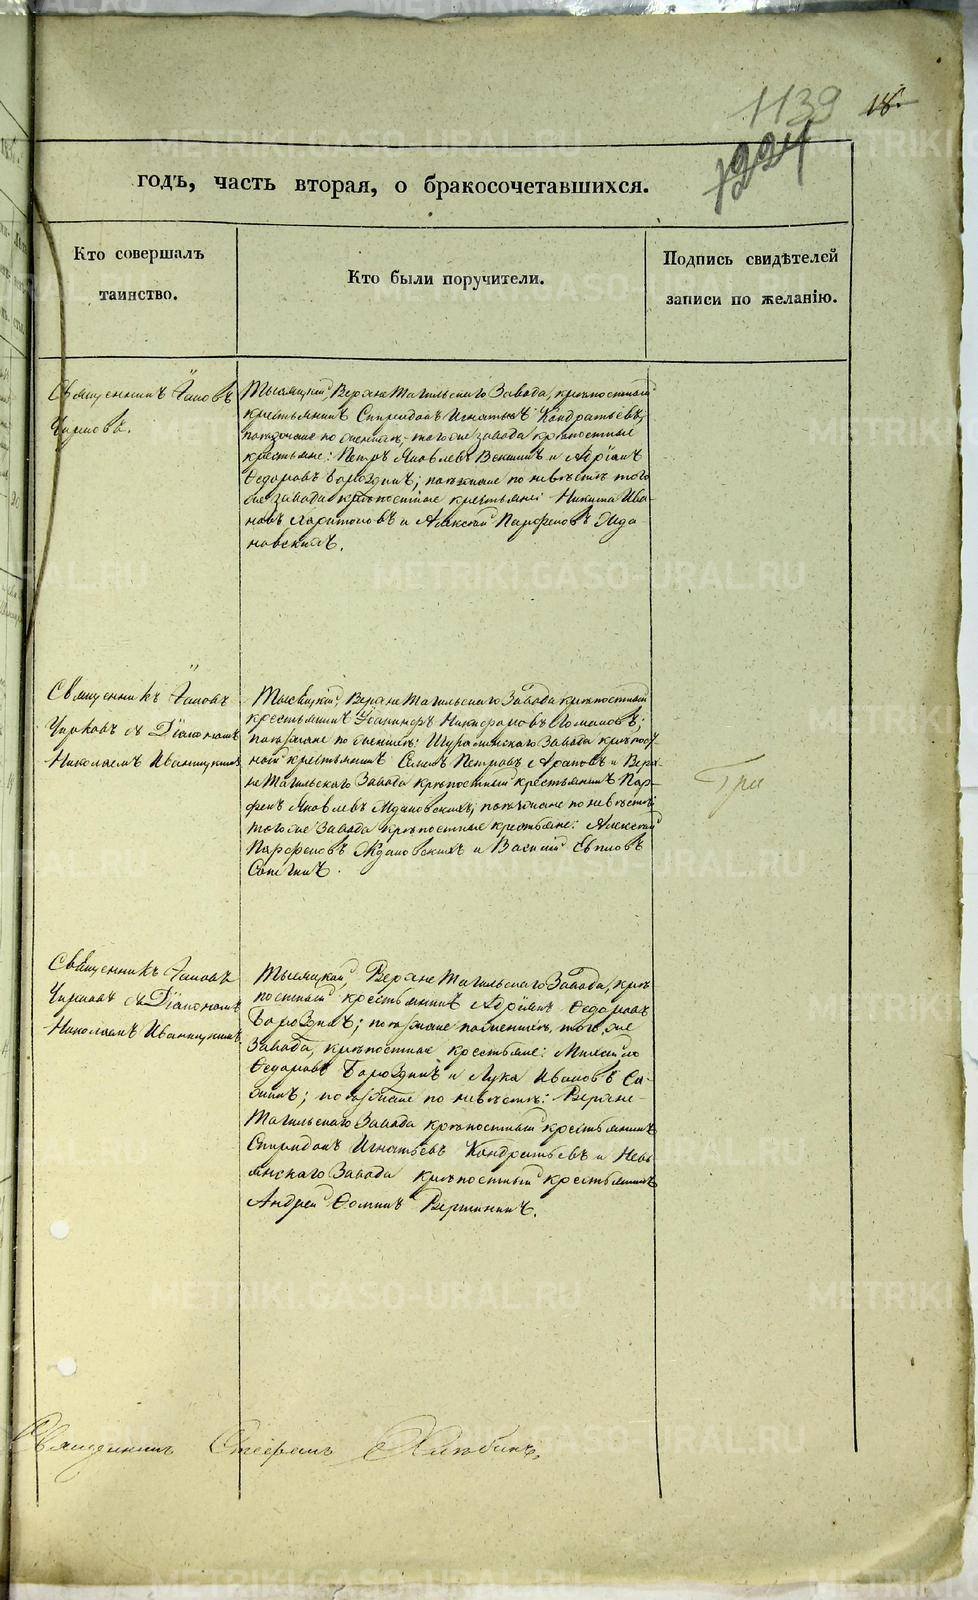 1139 18.
1224
годъ, часть вторая, о бракосочетавшихся.
Кто совершалъ
таинство.
Кто были поручители.
Подпись свидѣтелей
записи по желанію.
Священникъ Іаковъ
Чирковъ.
Тысяцкій, Верхне Тагильскаго Завода, крѣпостный
крестьянинъ Спиридонъ Игнатьевъ Кондратьевъ,
поѣзжане по женихѣ; того же завода крѣпостные
крестьяне: Петръ Яковлевъ и Адріанъ
Ѳедоровъ Бороздинъ; поѣзжане по невѣстѣ того
же завода крѣпостные крестьяне: Никита Ива-
новъ Харитоновъ и Алексѣй Парфеновъ Жда-
новскихъ.
Священникъ Іаковъ
Чирковъ съ Діакономъ
Николаемъ Иваницкимъ
Тысяцкій, Верхне Тагильскаго Завода крѣпостный
крестьянинъ Никифоровъ Ломановъ;
поѣзжане по женихѣ: Шуралинскаго Завода крѣпост-
ный крестьянинъ Семенъ Петровъ Араповъ и Верх-
не Тагильскаго Завода крѣпостный крестьянинъ Пар-
фенъ Яковлевъ Ждановскихъ; поѣзжане по невѣстѣ:
того же Завода крѣпостные крестьяне: Алексѣй
Парфеновъ Ждановскихъ и Василій
Три
Священникъ Іаковъ
Чирковъ съ Діакономъ
Николаемъ Иваницкимъ.
Тысяцкій, Верхне Тагильскаго Завода, крѣ-
постный крестьянинъ Адріанъ Ѳедоровъ
Бороздинъ; поѣзжане по женихѣ, того же
Завода, крѣпостные крестьяне: Михаило
Ѳедоровъ Бороздинъ и Лука Ивановъ Са-
бинъ; поѣзжане по невѣстѣ: Верхне-
Тагильскаго Завода крѣпостный крестьянинъ
Спиридонъ Игнатьевъ Кондратьевъ и Невь-
янскаго Завода крѣпостный крестьянинъ
Андрей Ѳоминъ Вершининъ.
Священникъ Стефанъ Хлѣбинъ.
METRIKI.GASO-URAL.RU